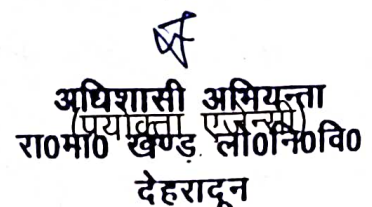 अधिशासी अभियन्ता
(प्रयोक्ता एजेन्सी)
रा0मा0 खण्ड. लो0नि0वि0
देहरादून